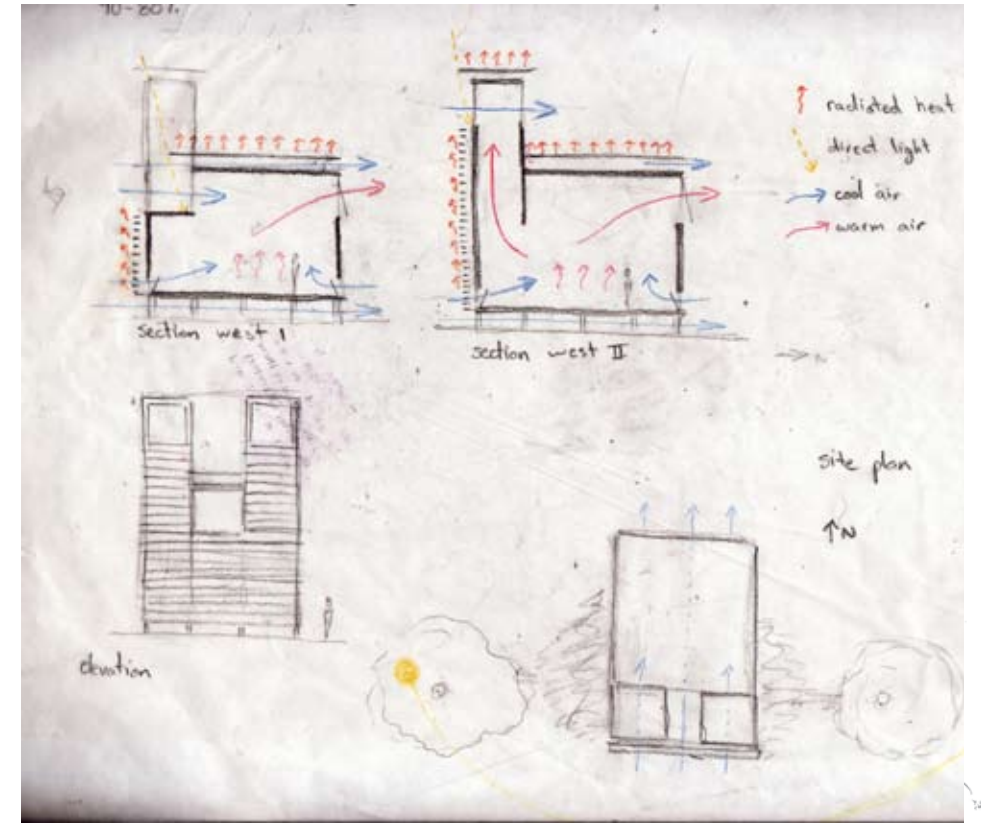 70-80%.
radiated heat
direct light
cool air
warm air
section west I
section west II
site plan
N
elevation